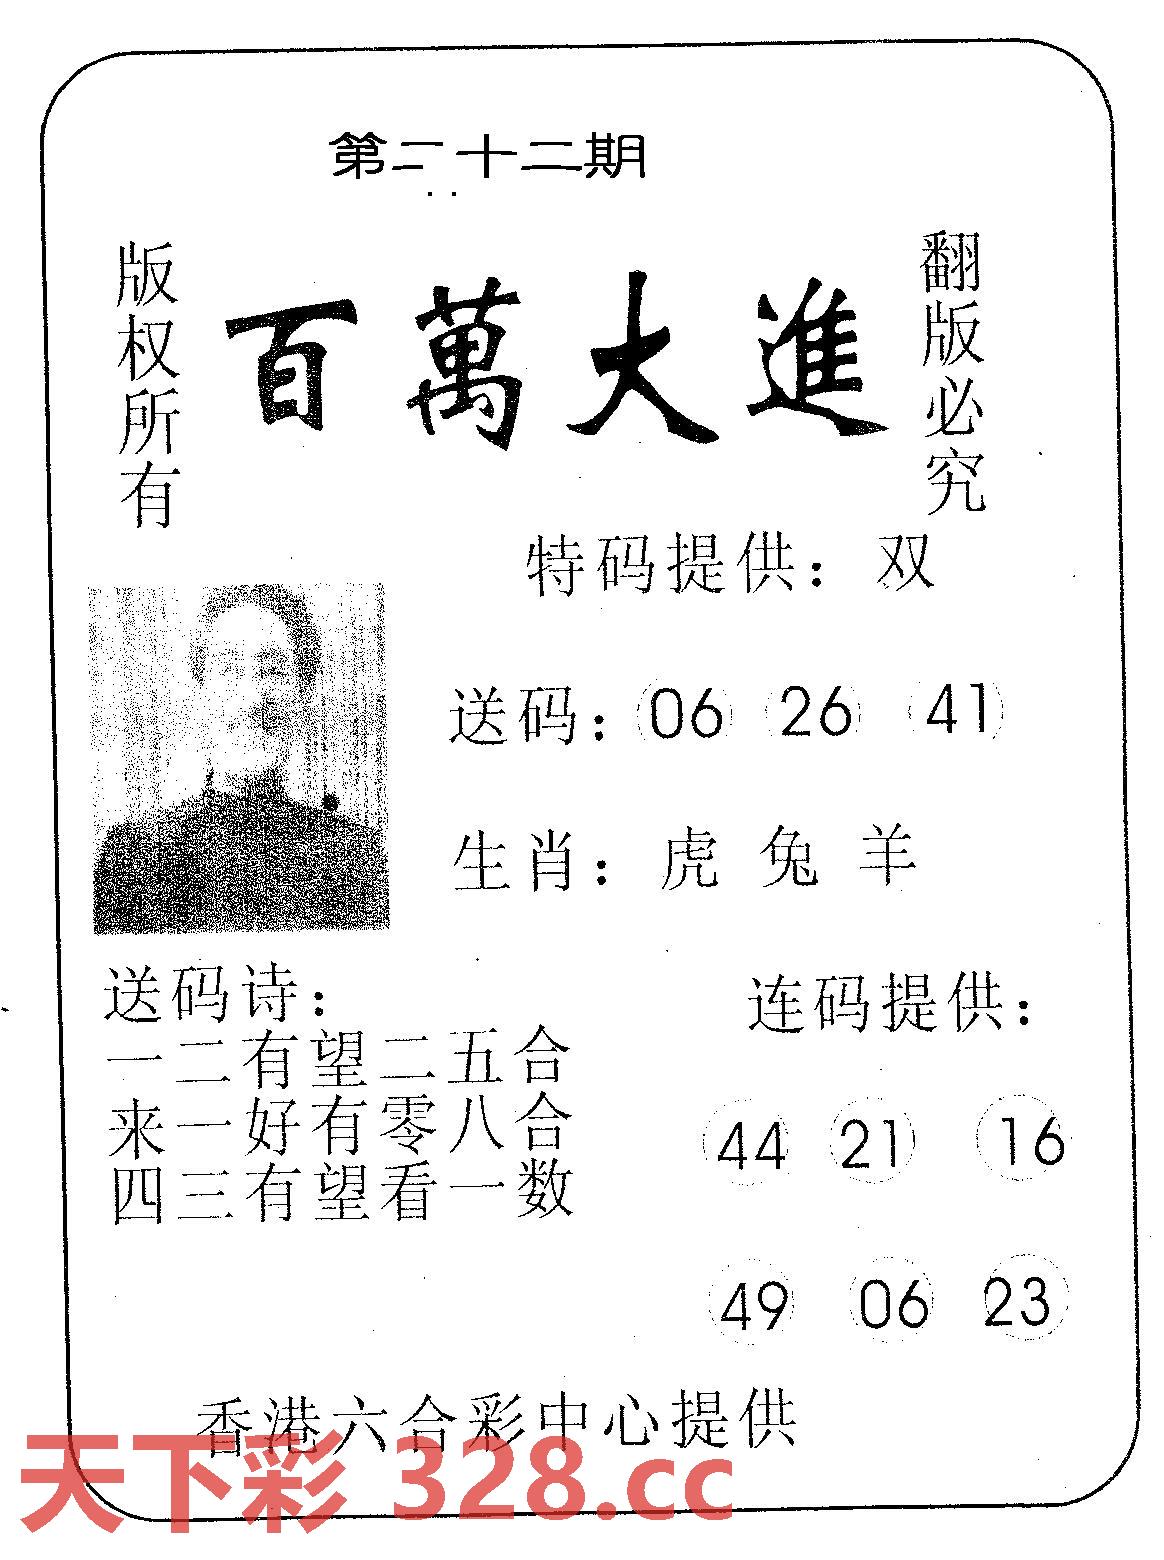 第二十二期
版权所有
百萬大進
翻版必究
特码提供：双
送码：06 26 41
生肖：虎 兔 羊
送码诗：
一二有望二五合
来一好有零八合
四三有望看一数
连码提供：
44 21 16
49 06 23
香港六合彩中心提供
天下彩 328.cc